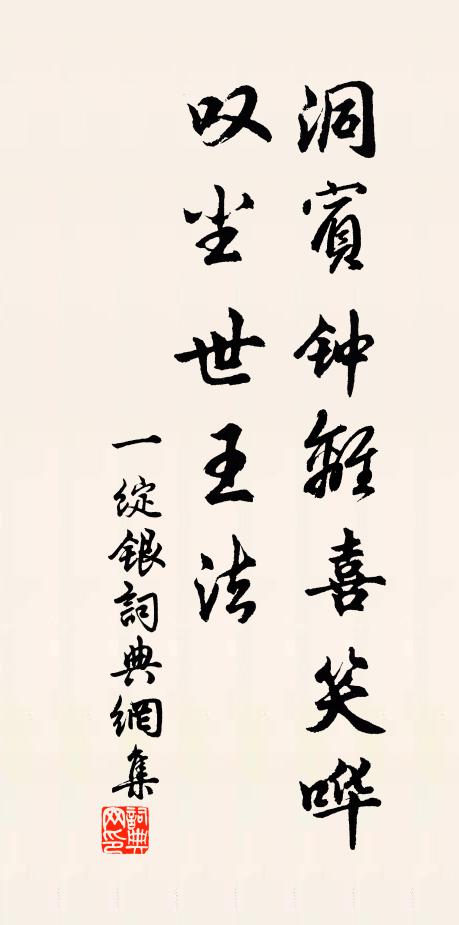 洞賓钟離喜笑哗
叹尘世王法
一綻銀詞典網集
詞典
网印